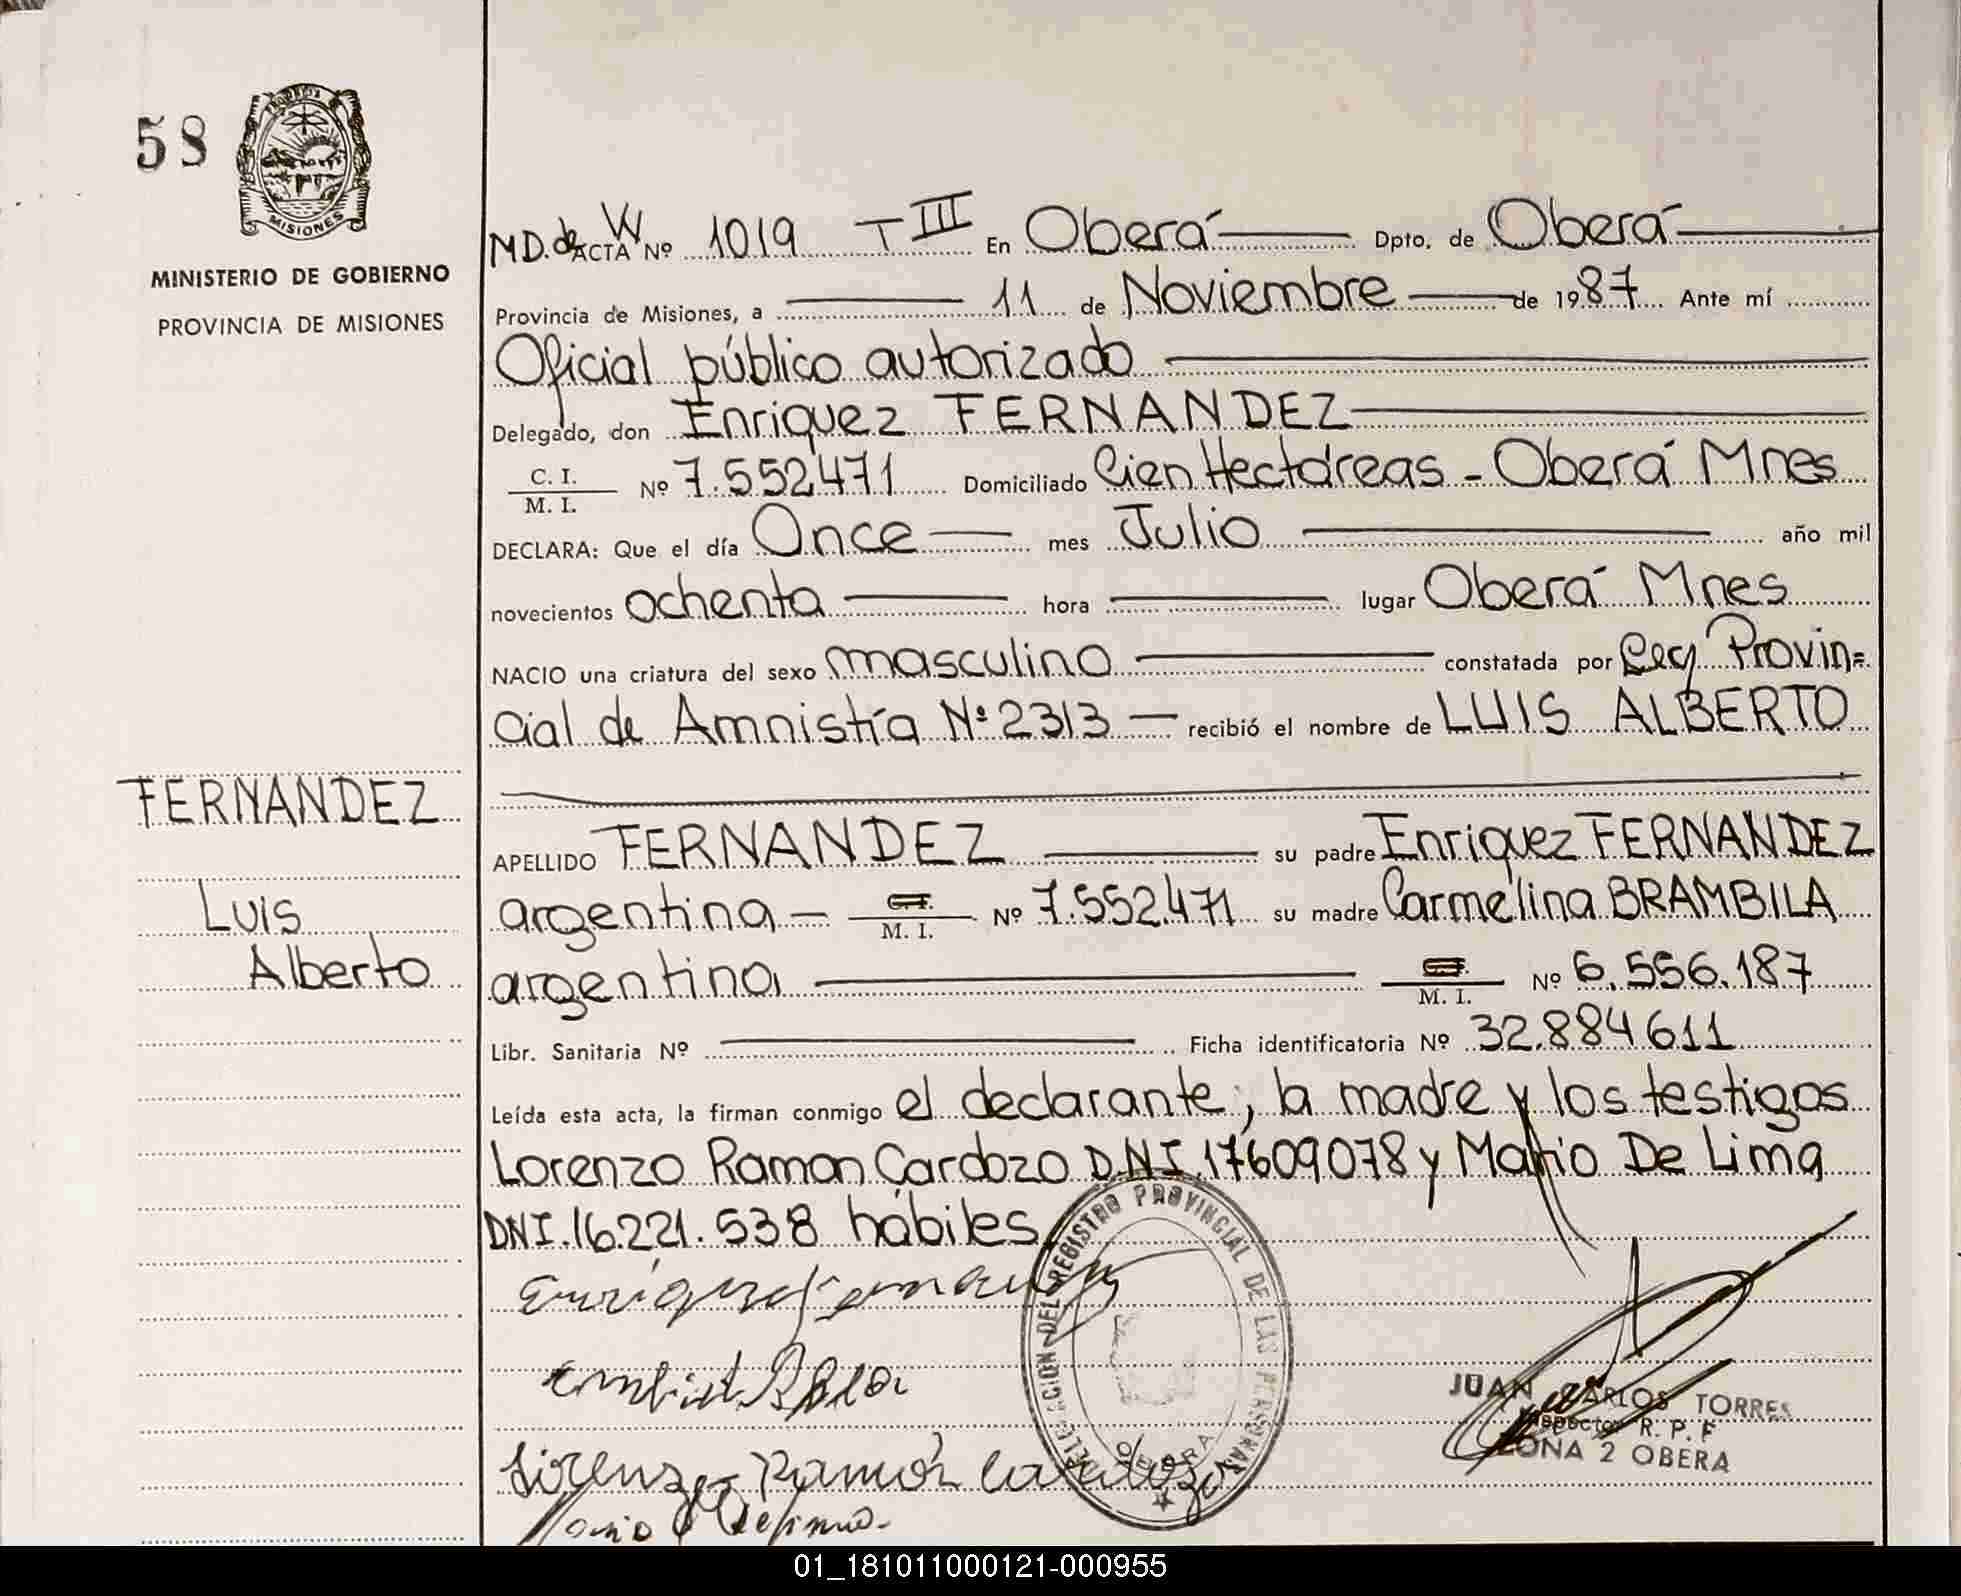 58
MISIONES
MINISTERIO DE GOBIERNO
PROVINCIA DE MISIONES
FERNANDEZ
Luis
Alberto
MD. de W ACTA Nº 1019 T III En Oberá Dpto. de Oberá
Provincia de Misiones, a 11 de Noviembre de 1987 Ante mí
Oficial público autorizado
Delegado, don Enriquez FERNANDEZ
C. I. / M. I. Nº 7.552.471 Domiciliado Cien Hectáreas - Oberá Mnes
DECLARA: Que el día Once mes Julio año mil
novecientos ochenta hora lugar Oberá Mnes
NACIO una criatura del sexo masculino constatada por Ley Provin=
cial de Amnistía Nº 2313 recibió el nombre de LUIS ALBERTO
APELLIDO FERNANDEZ su padre Enriquez FERNANDEZ
argentina M. I. Nº 7.552.471 su madre Carmelina BRAMBILA
argentina M. I. Nº 6.556.187
Libr. Sanitaria Nº Ficha identificatoria Nº 32.884611
Leída esta acta, la firman conmigo el declarante, la madre y los testigos
Lorenzo Ramon Cardozo D.N.I. 17609078 y Mario De Lima
DNI. 16.221.538 hábiles
DELEGACION DEL REGISTRO PROVINCIAL DE LAS PERSONAS
OBERA
Lorenzo Ramón Cardozo
JUAN CARLOS TORRES
Inspector R. P. F
ZONA 2 OBERA
01_181011000121-000955